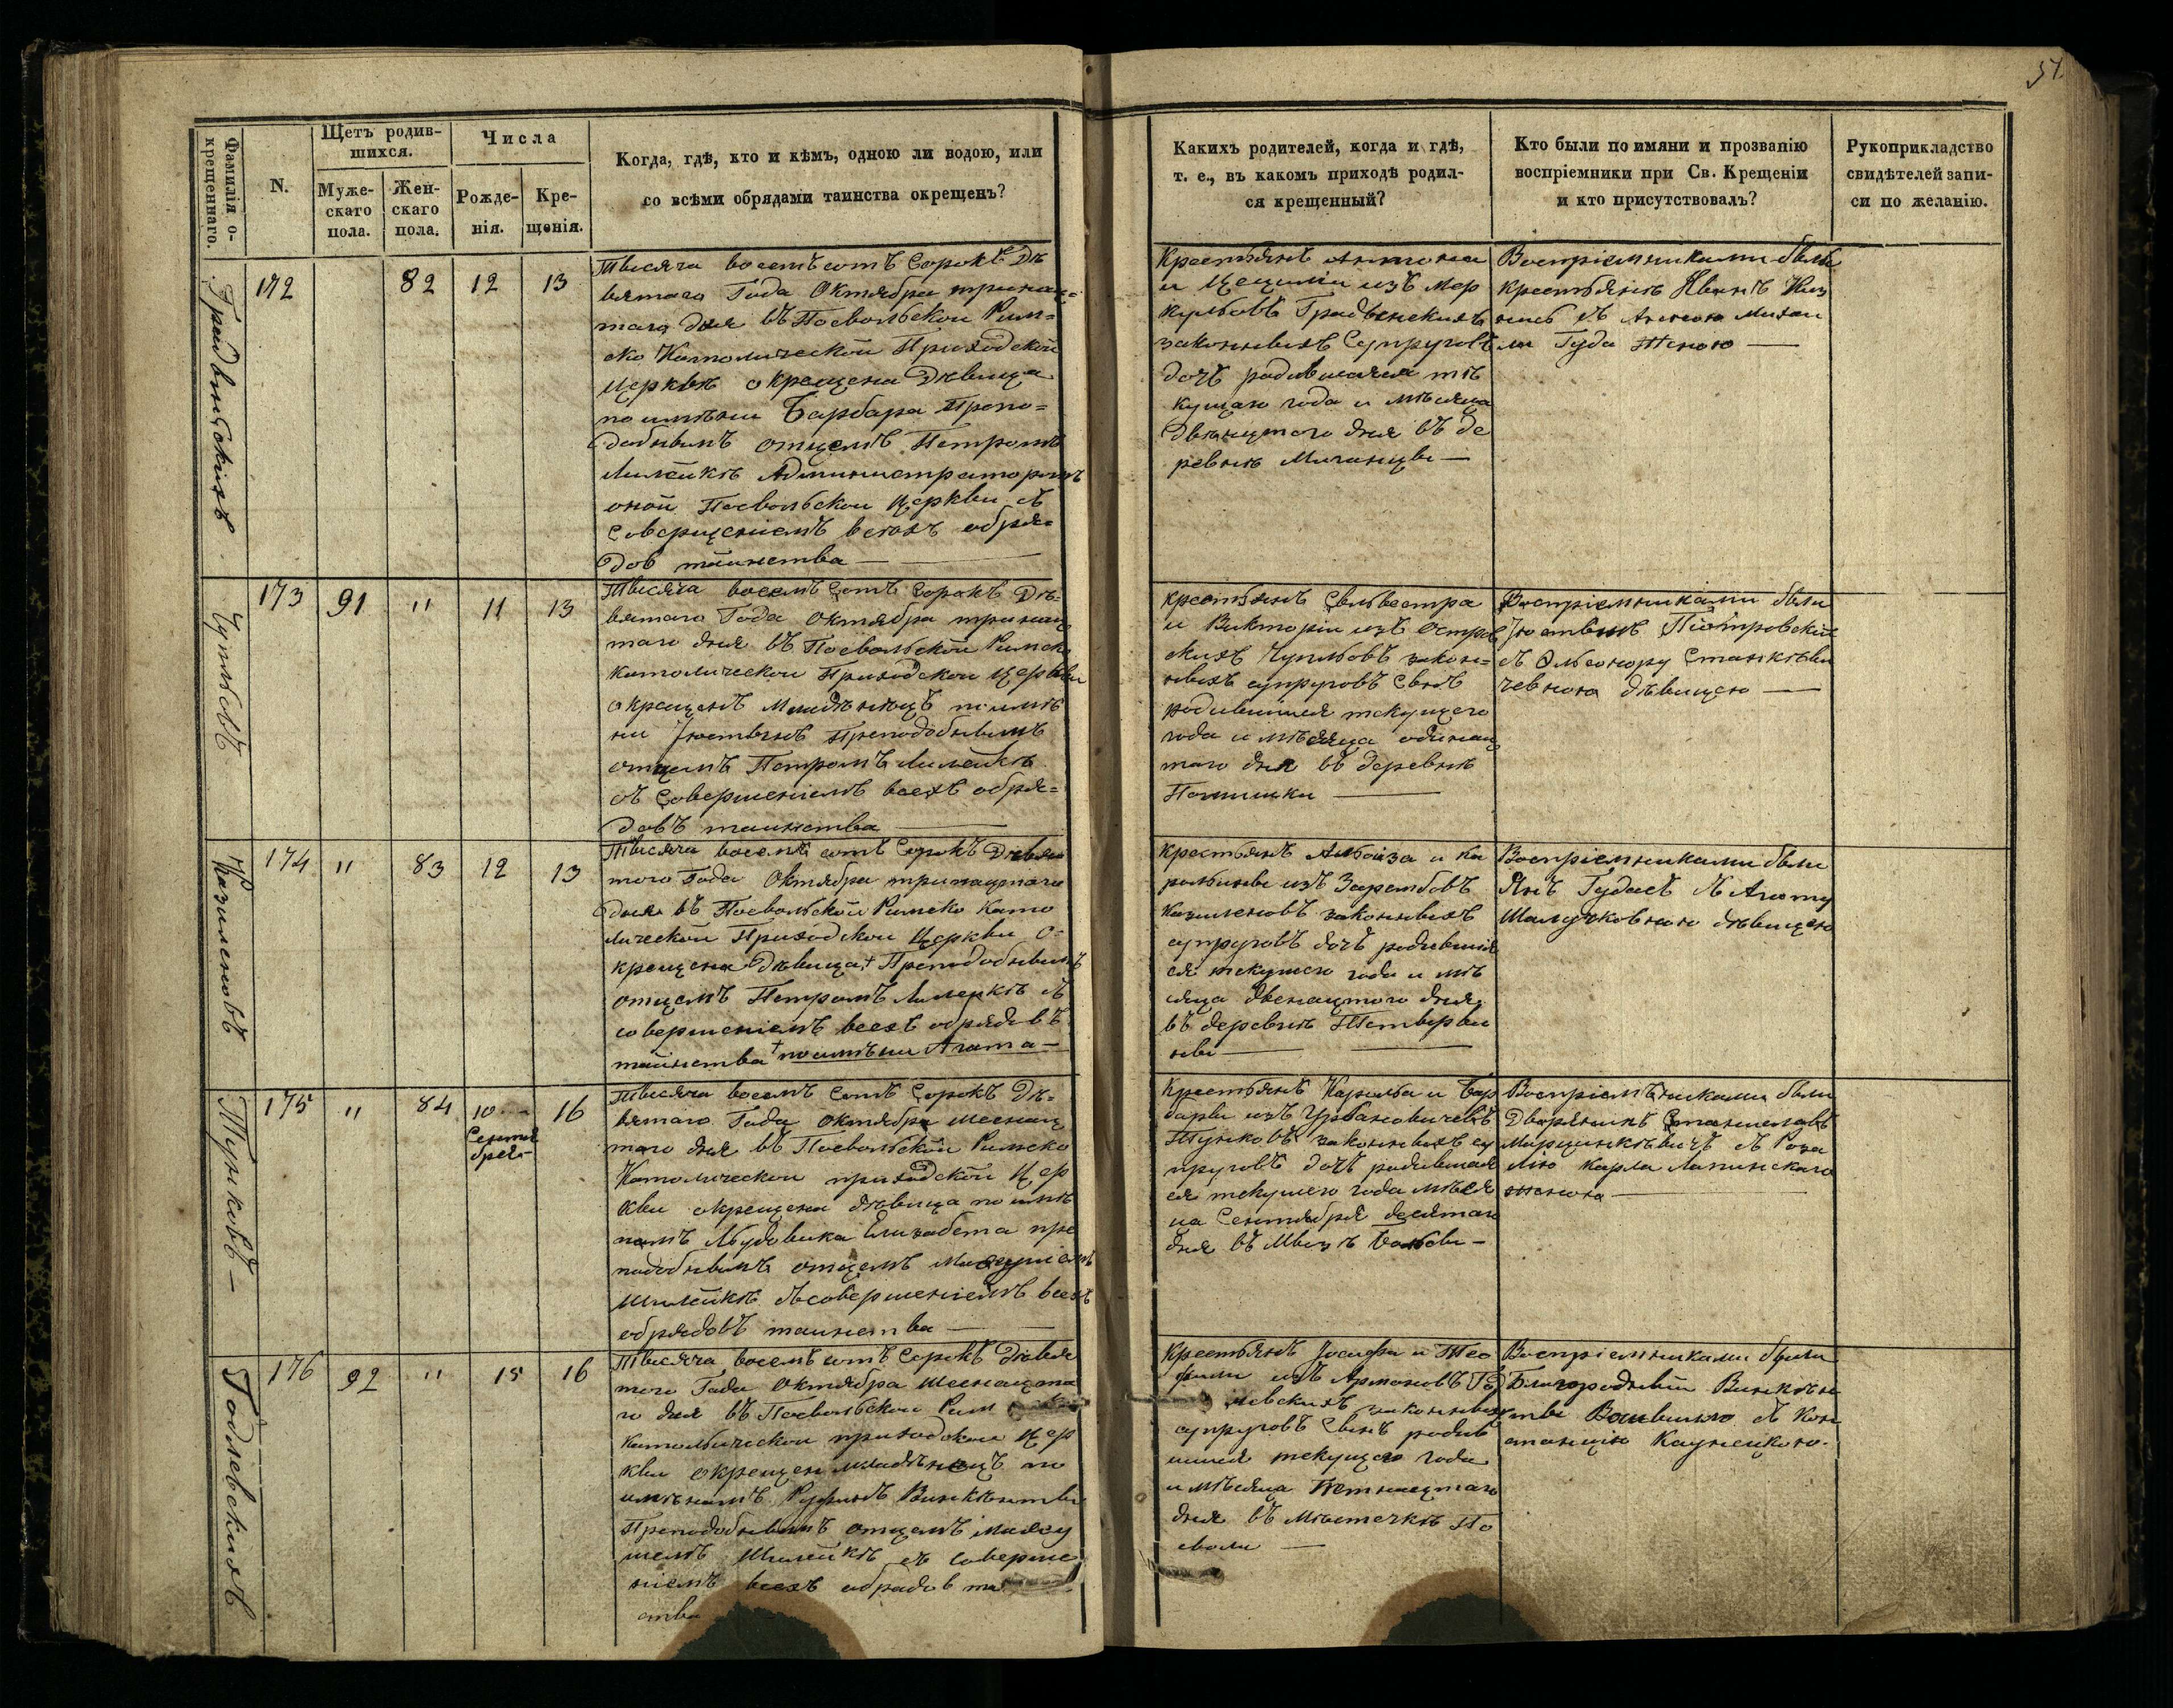 57.
Фамилія о-
крещеннаго.
N.
Щетъ родив-
шихся.
Муже-
скаго
пола.
Жен-
скаго
пола.
Числа
Рожде-
нія.
Кре-
щенія.
Когда, гдѣ, кто и кѣмъ, одною ли водою, или
со всѣми обрядами таинства окрещенъ?
Какихъ родителей, когда и гдѣ,
т. е., въ какомъ приходѣ родил-
ся крещенный?
Кто были по имяни и прозванію
воспріемники при Св. Крещеніи
и кто присутствовалъ?
Рукоприкладство
свидѣтелей запи-
си по желанію.
172
82
12
13
Тысяча восемъ сотъ Сорокъ Дѣ
вятаго Года Октября тринац=
таго дня въ Посвольской Рим=
ско Католической Приходской
Церквѣ окрещена Дѣвица
по имѣни Барбара Препо=
добнымъ отцемъ Петромъ
Администраторомъ
оной Посвольской Церкви съ
Совершеніемъ всѣхъ обря=
дов таинства —
Крестьянъ Антона
и Цециліи изъ Мер
законныхъ Супруговъ
дочь родившаяся тѣ
кущаго года и мѣсяца
двенацтаго дня въ де
ревнѣ
Воспріемниками были
крестьянъ Иванъ
Гуда женою —
Чуплевъ
173
91
"
11
13
Тысяча восемъ Сотъ Сорокъ Дѣ=
вятаго Года Октября тринац
таго дня въ Посвольской Римско
католической Приходской Церкви
окрещенъ Младѣнецъ по имѣ
ни Юстынъ Преподобнымъ
отцемъ Петромъ
съ Совершеніемъ всехъ обря=
довъ таинства
Крестьянъ Сыльвестра
и Викторіи изъ Остров
скихъ Чуплевъ закон=
ныхъ супруговъ Сынъ
родившійся текущего
года и мѣсяца одинац
таго дня въ деревнѣ
Воспріемниками были
Юстынъ Піотровскій
съ Эльеонору Станкѣви
чевною дѣвицею —
Казиленовъ
174
"
83
12
13
Тысяча восемъ сотъ Сорокъ Девя
того Года Октября тринацтаго
дня въ Посвольской Римско Като
лической Приходской Церкви о=
крещена Дѣвица+ Преподобнымъ
отцемъ Петромъ съ
совершеніемъ всехъ обрядовъ
таинства +по имѣни Агата —
Крестьянъ Альойза и Ка
ролины изъ Зарембовъ
Казиленовъ законныхъ
супруговъ дочь родившая
ся текущего года и мѣ
сяца двенацтаго дня
въ деревнѣ
Воспріемниками были
Янъ Гудасъ съ Агату
дѣвицею
Тунковъ —
175
"
84
10 —
Сентя
бря —
16
Тысяча восемъ Сотъ Сорокъ Дѣ=
вятаго Года Октября шеснац
таго дня въ Посвольской Римско
Католической приходской Цер
кви окрещена дѣвица по имѣ
намъ Людовика Елизабета пре
подобнымъ отцемъ
съ совершеніемъ всехъ
обрядовъ таинства —
Крестьянъ Кароля и Бар
бары изъ Урбановичевъ
Тунковъ законныхъ су
пруговъ дочь родившая
ся текущего года мѣся
ца Сентября десятаго
дня въ
Воспріемъниками были
Дворянинъ Станиславъ
Марцинкѣвичъ съ Роза
лію Карла Лапинскаго
женою —
Годлевскихъ
176
92
"
15
16
Тысяча восемъ сотъ Сорокъ Девя
того Года Октября шеснацта
го дня въ Посвольской Рим
католической приходской Цер
кви окрещен младѣнецъ по
имѣнамъ Руфинъ Винкѣнты
Преподобнымъ отцемъ
съ соверше
ніемъ всехъ обрядов та
ства
Крестьянъ Іосифа и Тео
фили изъ Армоновъ Год
левскихъ законныхъ
супруговъ Сынъ родив
шійся текущего года
и мѣсяца Петнацтаго
дня въ Мѣстечкѣ По
сволѣ —
Воспріемниками были
Благородный Винкѣн
ты съ Кон
станцію